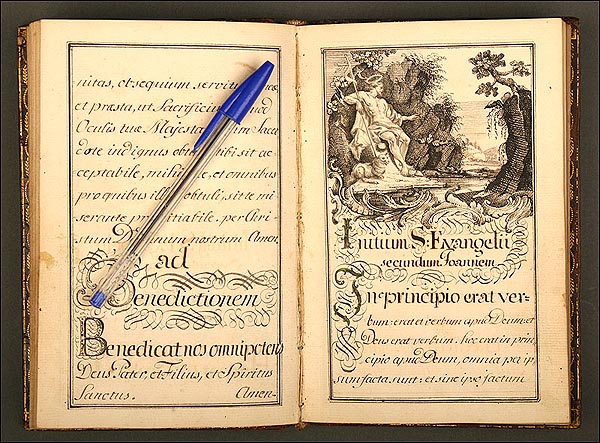 nitas, obsequium servitu
et præsta, ut Sacrificiu
Oculis tuæ Majesta
dote indignus obtu tibi sit ac-
ceptabile, mihi et omnibus
pro quibus ill obtuli, sit te mi-
serante pr itiabile. per Chri-
stum D num nostrum Amen.
ad
Benedictionem
Benedicat nos omnipotens
Deus Pater, et Filius, et Spiritus
Sanctus. Amen.
Initium S: Evangelii
secundum Joannem
In principio erat ver-
bum: erat et verbum apud Deum: et
Deus erat verbum. hoc erat in prin,
cipio apud Deum, omnia per ip,
sum facta sunt: et sine ipso factum